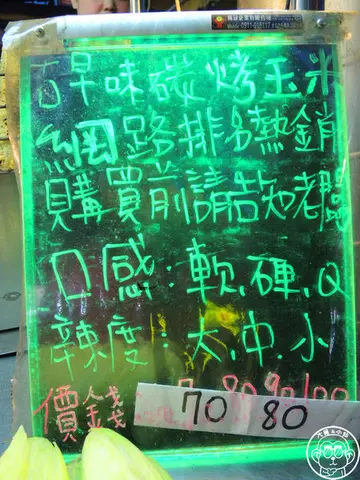 古早味碳烤玉米
網路排名熱銷
購買前請告知老闆
口感:軟.硬.Q
辣度:大.中.小
價錢 70 80 90 100
70 80